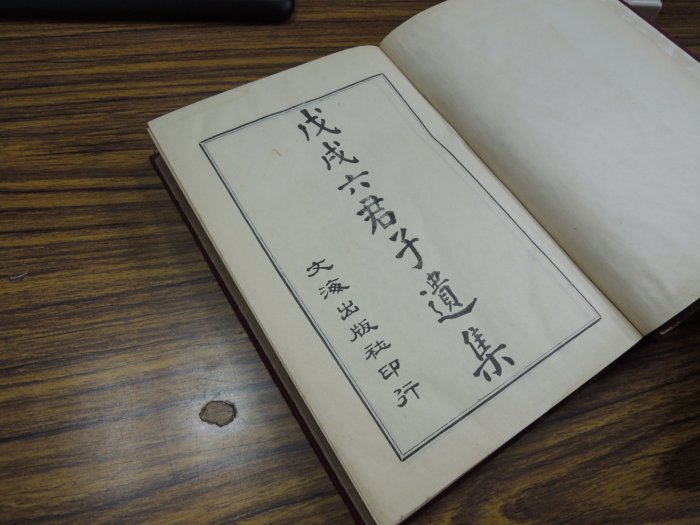 戊戌六君子遺集
文海出版社印行